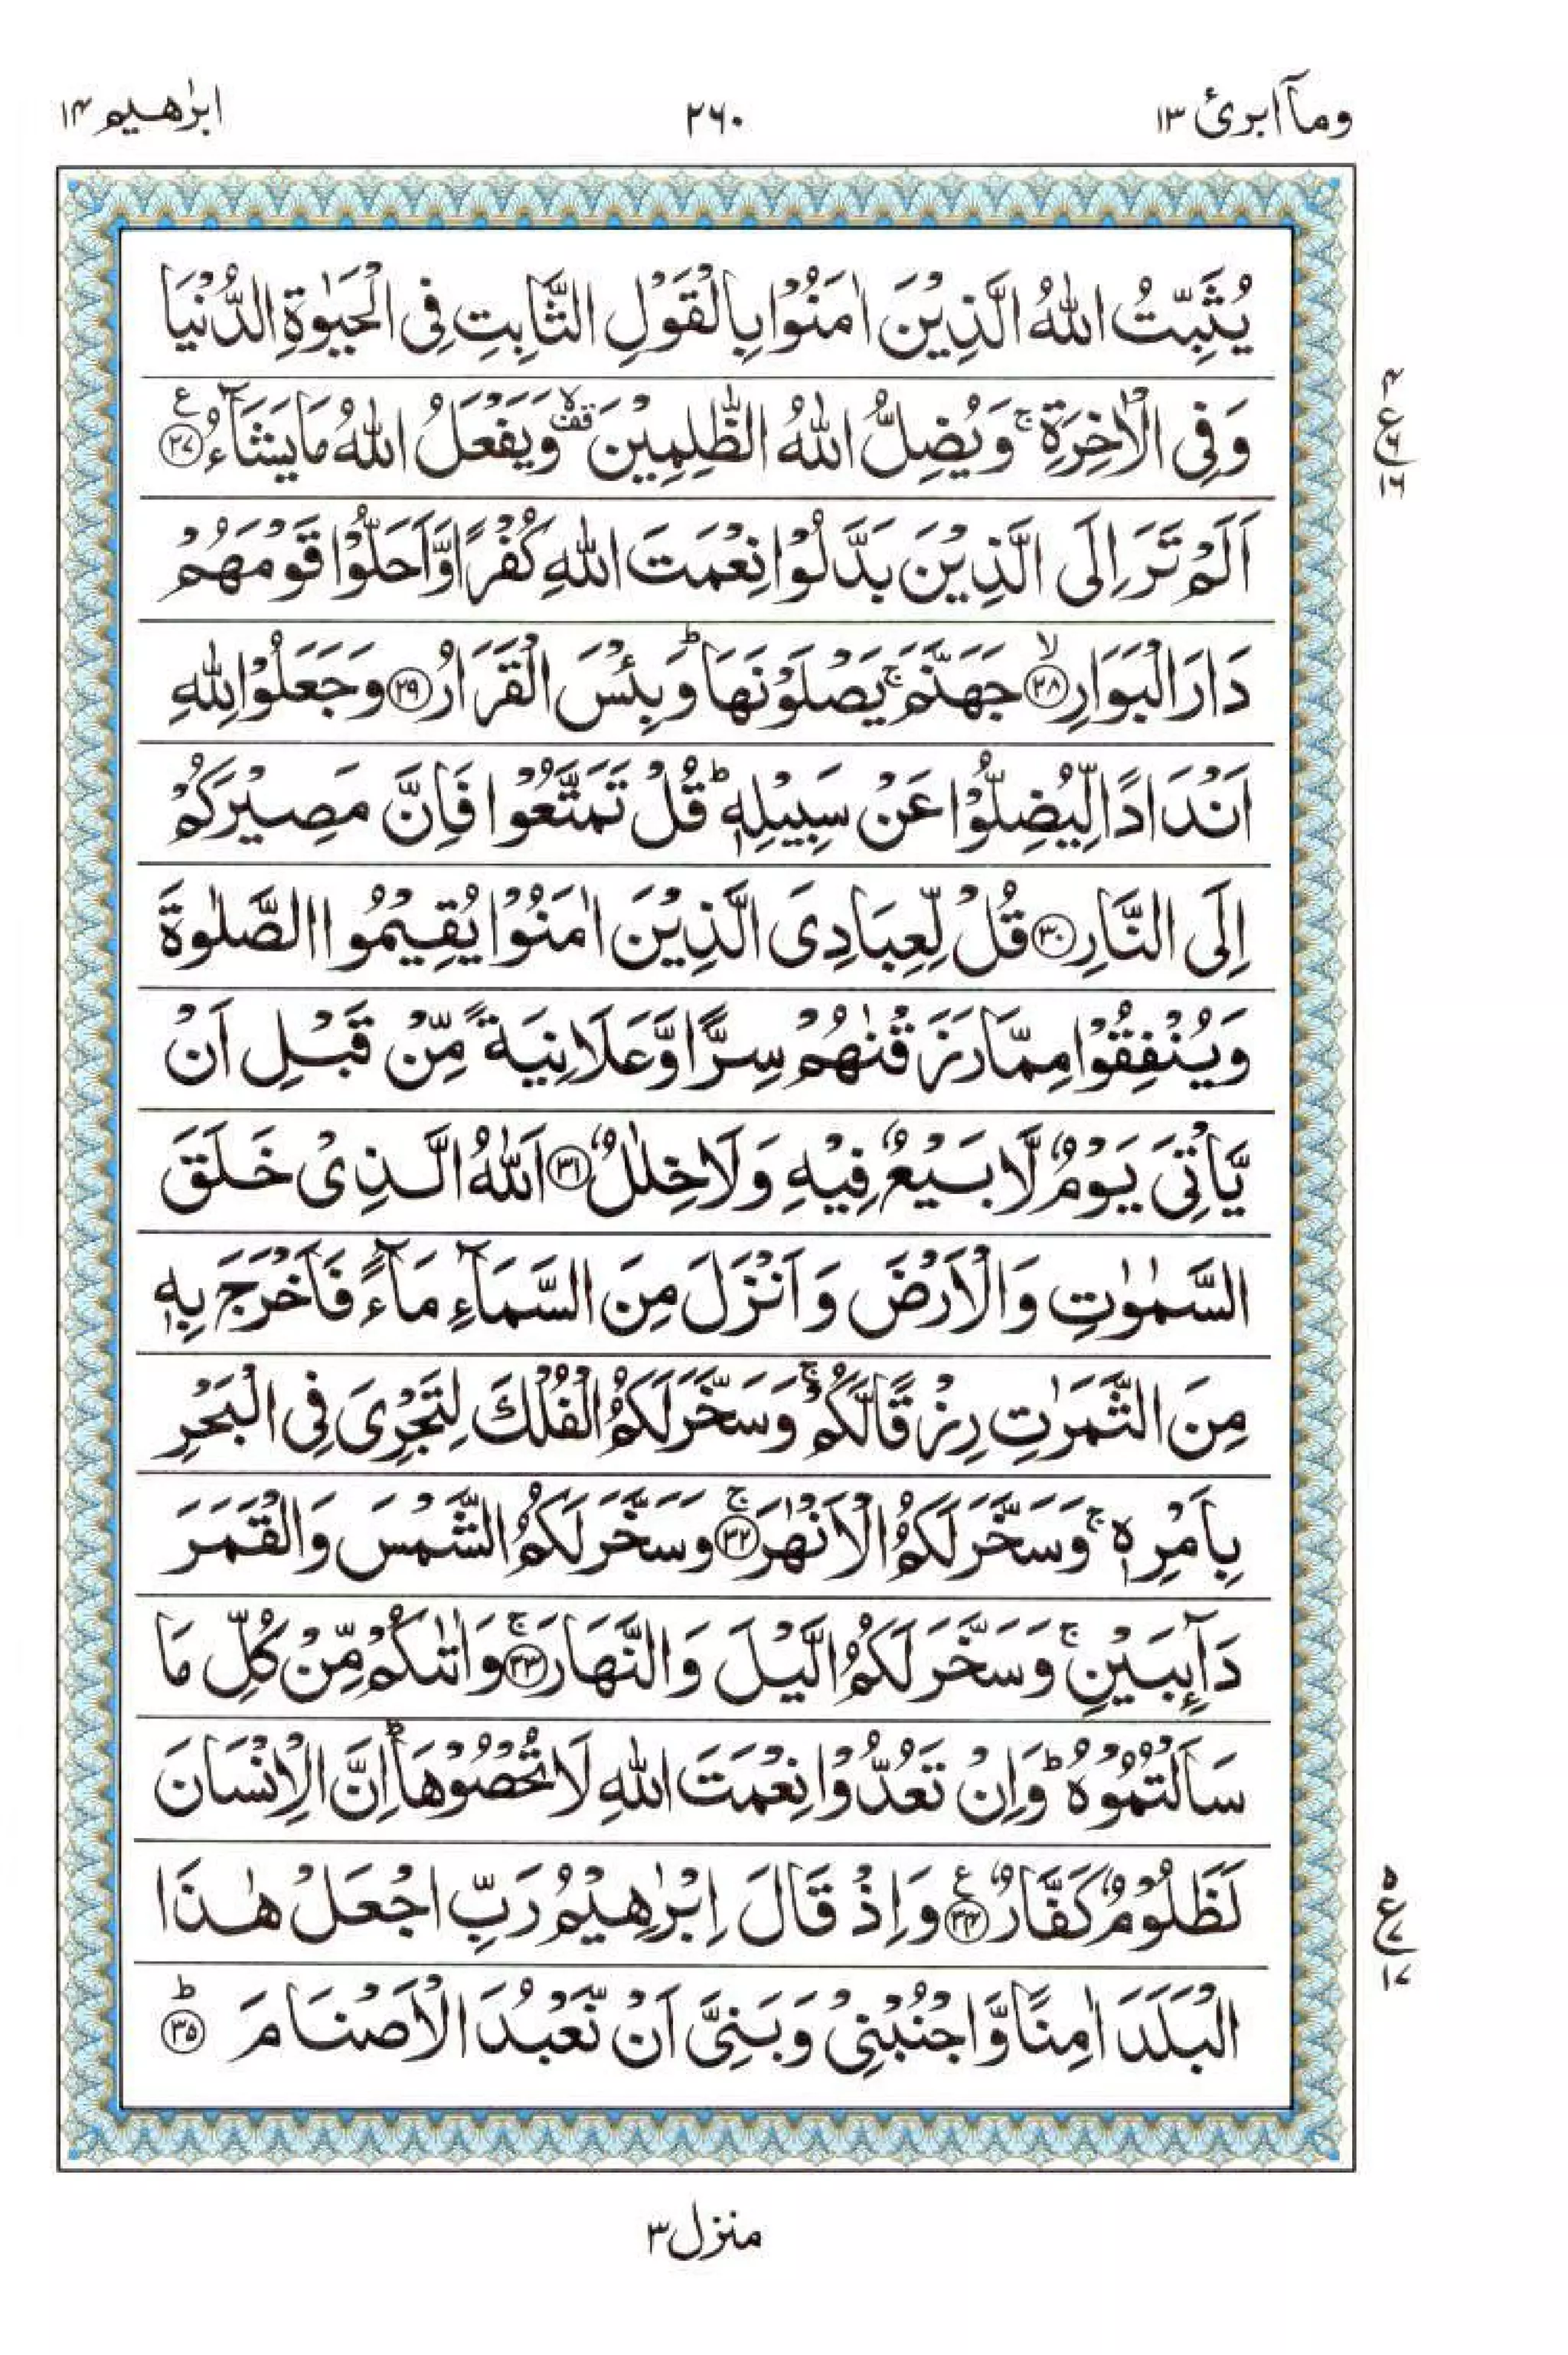 وماۤ ابرئ ١٣
٢٦٠
ابرٰهيم ١٤
يُثَبِّتُ اللّٰهُ الَّذِيْنَ اٰمَنُوْا بِالْقَوْلِ الثَّابِتِ فِى الْحَيٰوةِ الدُّنْيَا
وَفِى الْاٰخِرَةِ ۚ وَيُضِلُّ اللّٰهُ الظّٰلِمِيْنَ ۙ قف وَيَفْعَلُ اللّٰهُ مَا يَشَآءُ ﴿٢٧﴾ ع
٤
ع
٦
١٦
اَلَمْ تَرَ اِلَى الَّذِيْنَ بَدَّلُوْا نِعْمَتَ اللّٰهِ كُفْرًا وَّاَحَلُّوْا قَوْمَهُمْ
دَارَ الْبَوَارِ ۙ﴿٢٨﴾ جَهَنَّمَ ۚ يَصْلَوْنَهَا ؕ وَبِئْسَ الْقَرَارُ ﴿٢٩﴾ وَجَعَلُوْا لِلّٰهِ
اَنْدَادًا لِّيُضِلُّوْا عَنْ سَبِيْلِهٖ ؕ قُلْ تَمَتَّعُوْا فَاِنَّ مَصِيْرَكُمْ
اِلَى النَّارِ ﴿٣٠﴾ قُلْ لِّعِبَادِىَ الَّذِيْنَ اٰمَنُوْا يُقِيْمُوا الصَّلٰوةَ
وَيُنْفِقُوْا مِمَّا رَزَقْنٰهُمْ سِرًّا وَّعَلَانِيَةً مِّنْ قَبْلِ اَنْ
يَّاْتِىَ يَوْمٌ لَّا بَيْعٌ فِيْهِ وَلَا خِلٰلٌ ﴿٣١﴾ اَللّٰهُ الَّذِىْ خَلَقَ
السَّمٰوٰتِ وَالْاَرْضَ وَاَنْزَلَ مِنَ السَّمَآءِ مَآءً فَاَخْرَجَ بِهٖ
مِنَ الثَّمَرٰتِ رِزْقًا لَّكُمْ ۚ وَسَخَّرَ لَكُمُ الْفُلْكَ لِتَجْرِىَ فِى الْبَحْرِ
بِاَمْرِهٖ ۚ وَسَخَّرَ لَكُمُ الْاَنْهٰرَ ۚ﴿٣٢﴾ وَسَخَّرَ لَكُمُ الشَّمْسَ وَالْقَمَرَ
دَآئِبَيْنِ ۚ وَسَخَّرَ لَكُمُ الَّيْلَ وَالنَّهَارَ ۚ﴿٣٣﴾ وَاٰتٰىكُمْ مِّنْ كُلِّ مَا
سَاَلْتُمُوْهُ ؕ وَاِنْ تَعُدُّوْا نِعْمَتَ اللّٰهِ لَا تُحْصُوْهَا ؕ اِنَّ الْاِنْسَانَ
لَظَلُوْمٌ كَفَّارٌ ﴿٣٤﴾ ع وَاِذْ قَالَ اِبْرٰهِيْمُ رَبِّ اجْعَلْ هٰذَا
٥
ع
٧
١٧
الْبَلَدَ اٰمِنًا وَّاجْنُبْنِىْ وَبَنِىَّ اَنْ نَّعْبُدَ الْاَصْنَامَ ؕ﴿٣٥﴾
منزل ٣